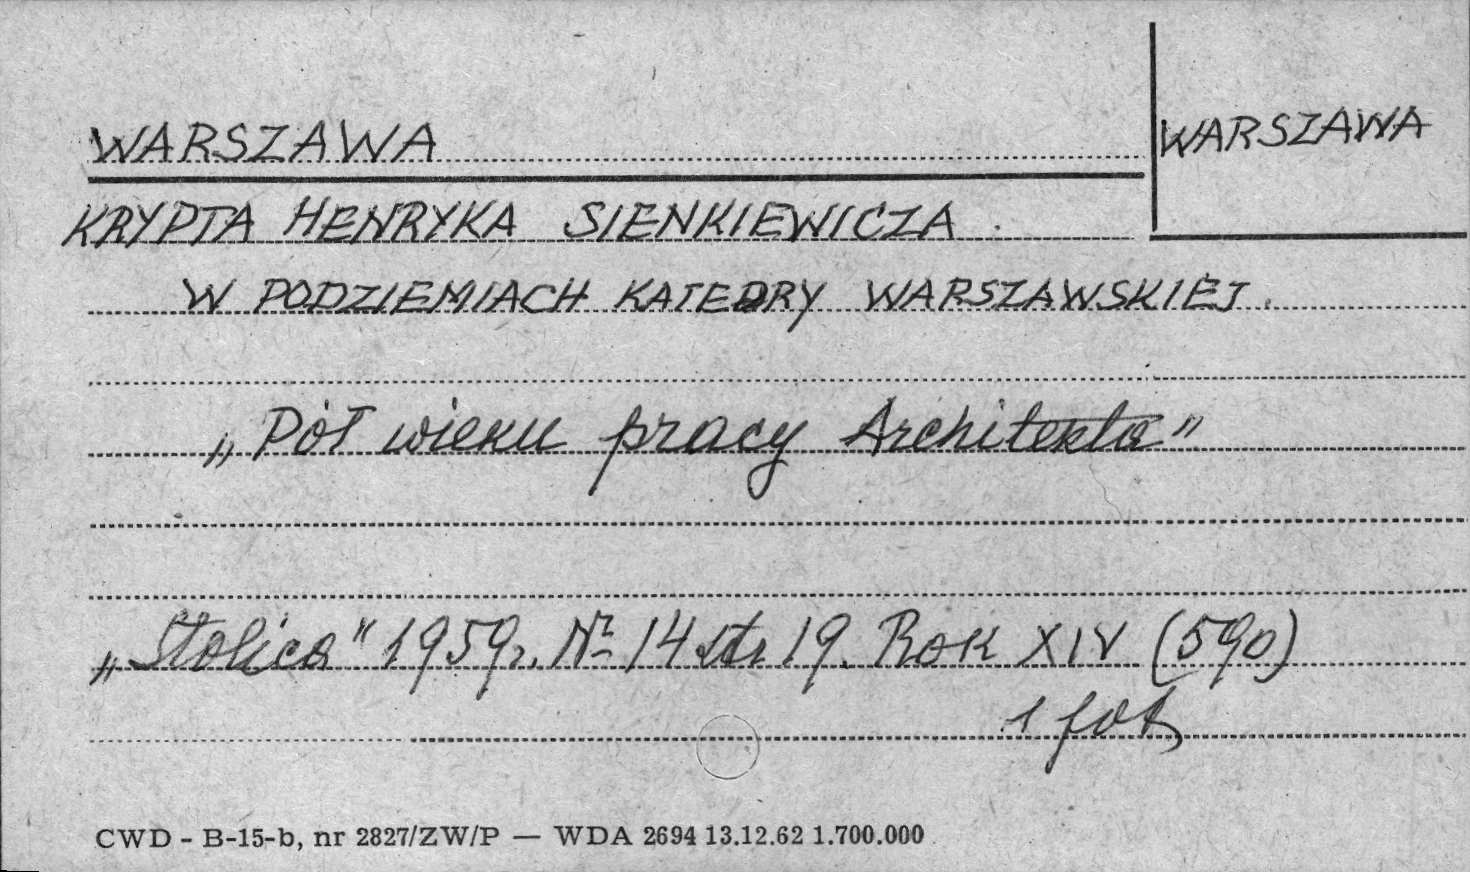 WARSZAWA
WARSZAWA
KRYPTA HENRYKA SIENKIEWICZA
W PODZIEMIACH KATEDRY WARSZAWSKIEJ.
„Pół wieku pracy Architekta”
„Stolica” 1959r. Nr 14 str 19. Rok XIV (590)
1 fot
CWD - B-15-b, nr 2827/ZW/P — WDA 2694 13.12.62 1.700.000